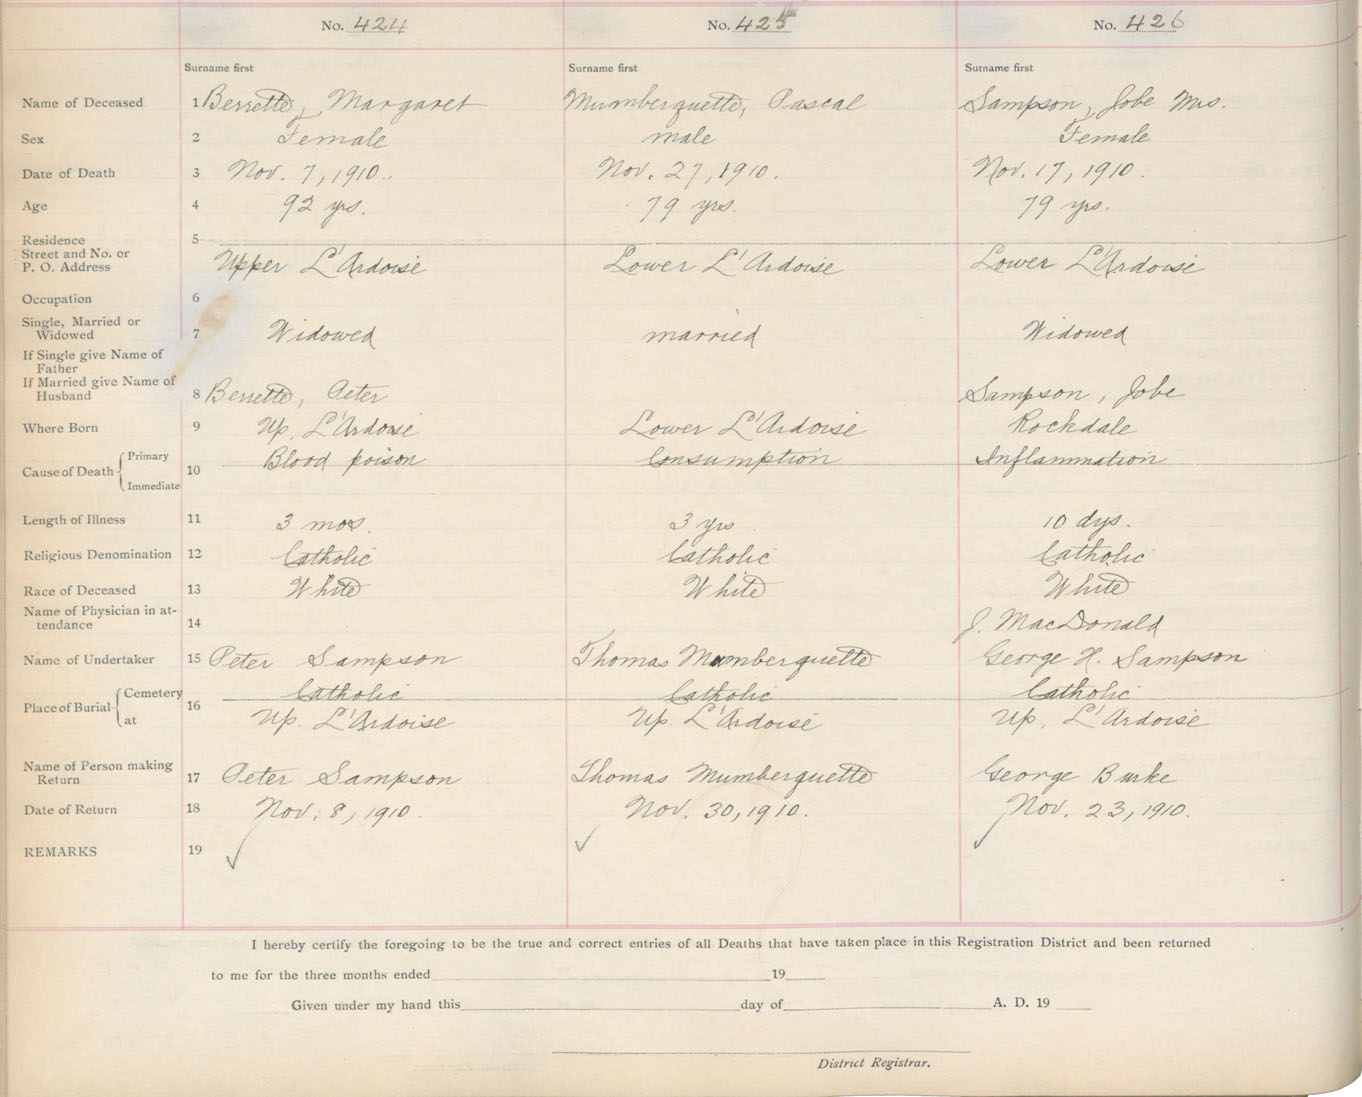 No. 424 No. 425 No. 426
Surname first Surname first Surname first
Name of Deceased 1 Berrette, Margaret Mumberquette, Pascal Sampson, Jobe Mrs.
Sex 2 Female male Female
Date of Death 3 Nov. 7, 1910. Nov. 27, 1910. Nov. 17, 1910.
Age 4 92 yrs. 79 yrs. 79 yrs.
Residence 5
Street and No. or
P. O. Address Upper L'Ardoise Lower L'Ardoise Lower L'Ardoise
Occupation 6
Single, Married or
Widowed 7 Widowed married Widowed
If Single give Name of
Father
If Married give Name of
Husband 8 Berrette, Peter Sampson, Jobe
Where Born 9 Up. L'Ardoise Lower L'Ardoise Rockdale
Cause of Death Primary 10 Blood poison Consumption Inflammation
Immediate
Length of Illness 11 3 mos. 3 yrs 10 dys.
Religious Denomination 12 Catholic Catholic Catholic
Race of Deceased 13 White White White
Name of Physician in at-
tendance 14 J. MacDonald
Name of Undertaker 15 Peter Sampson Thomas Mumberquette George H. Sampson
Place of Burial Cemetery 16 Catholic Catholic Catholic
at Up. L'Ardoise Up. L'Ardoise Up. L'Ardoise
Name of Person making
Return 17 Peter Sampson Thomas Mumberquette George Burke
Date of Return 18 Nov. 8, 1910. Nov. 30, 1910. Nov. 23, 1910.
REMARKS 19 ✓ ✓ ✓
I hereby certify the foregoing to be the true and correct entries of all Deaths that have taken place in this Registration District and been returned
to me for the three months ended 19
Given under my hand this day of A. D. 19
District Registrar.